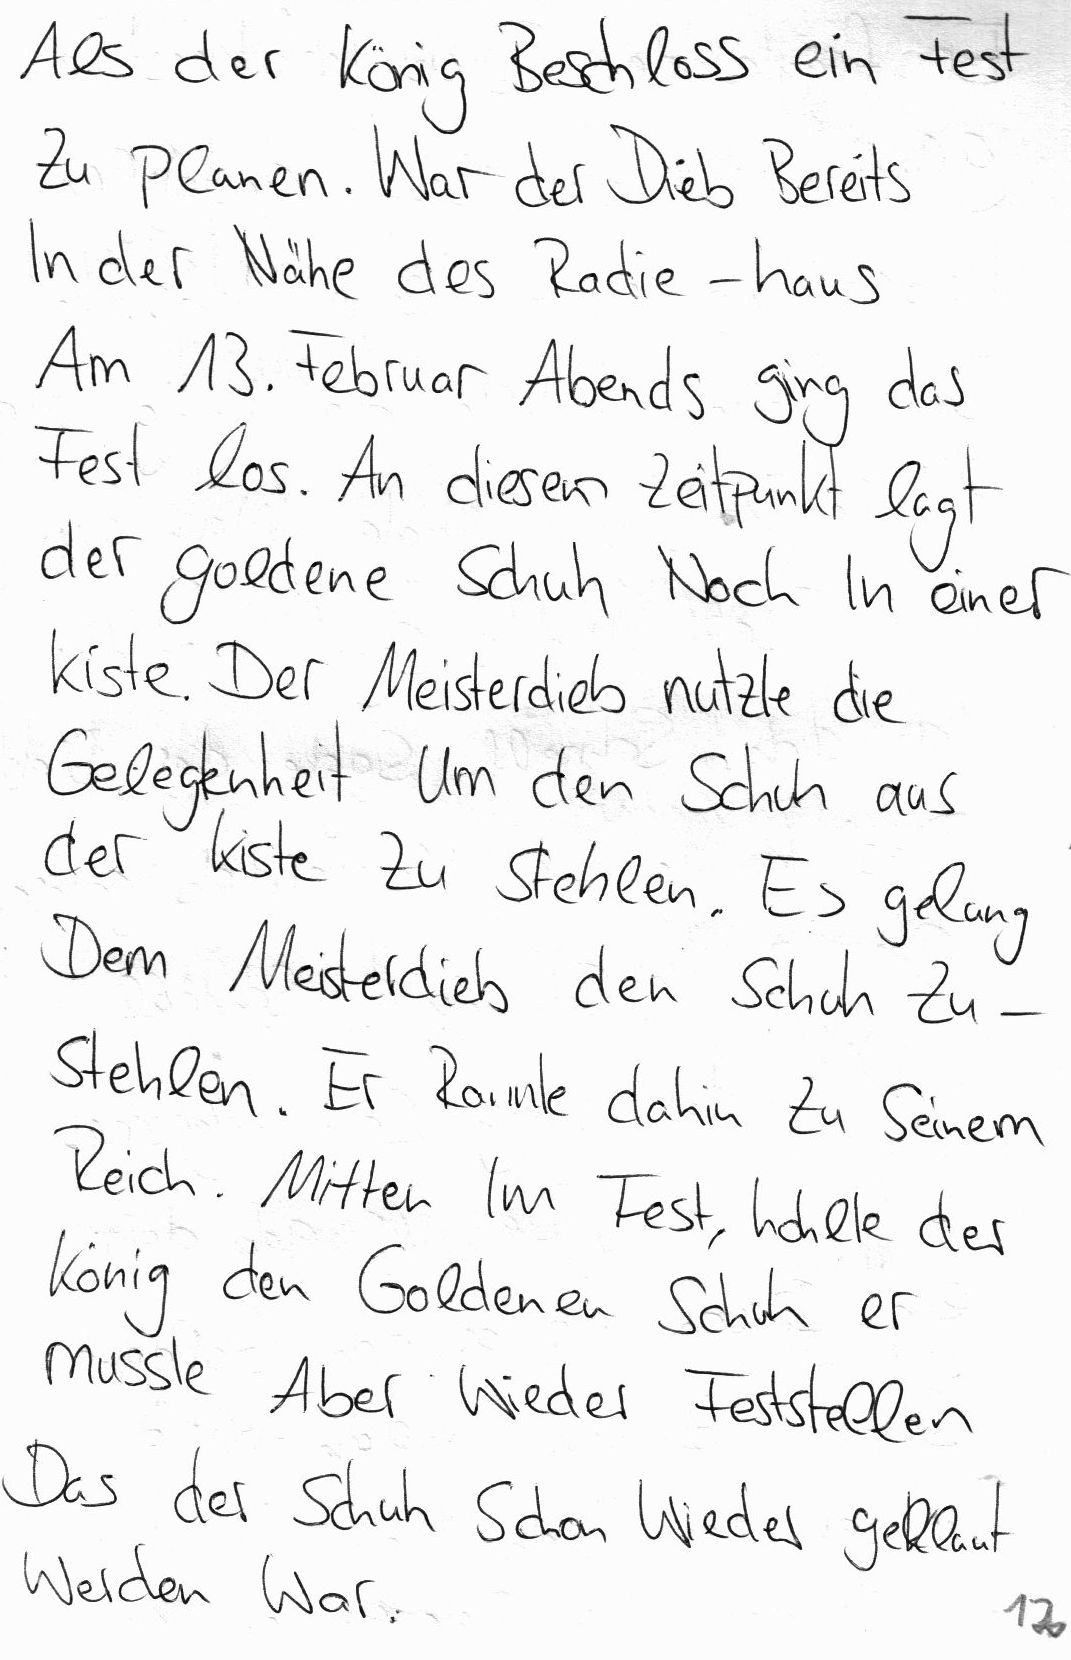 Als der König Beschloss ein Fest
Zu Planen. War der Dieb Bereits
In der Nähe des Radie-haus
Am 13. Februar Abends ging das
Fest los. An diesem Zeitpunkt lagt
der goldene Schuh Noch In einer
kiste. Der Meisterdieb nutzte die
Gelegenheit Um den Schuh aus
der kiste Zu Stehlen. Es gelang
Dem Meisterdieb den Schuh Zu-
Stehlen. Er Rannte dahin Zu Seinem
Reich. Mitten Im Fest, hohlte der
König den Goldenen Schuh er
musste Aber Wieder Feststellen
Das der Schuh Schon Wieder geklaut
Werden War.